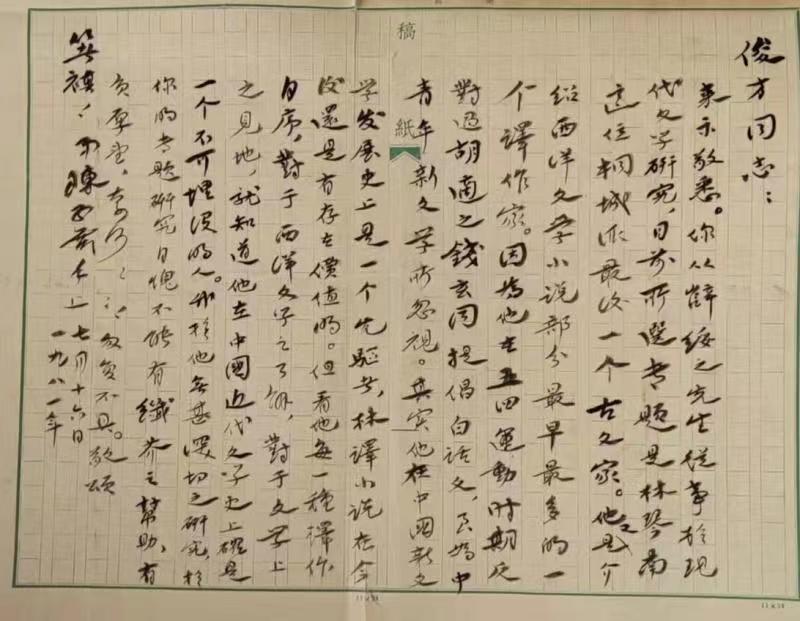 稿
紙
俊方同志：
来示敬悉。你从薛绥之先生从事於现
代文学研究，目前所選专题是林琴南
這位桐城派最后一个古文家。他是介
紹西洋文学小说部分最早最多的一
个譯作家。因為他在五四運動时期反
對過胡適之錢玄同提倡白话文，又為中
青年新文学所忽視。其实他在中國新文
学发展史上是一个先驱者，林譯小说在今
後還是有存在價值的。但看他每一種譯作
自序，對于西洋文学之了解，對于文学上
之見地，就知道他在中國近代文学史上確是
一个不可埋没的人。我於他無甚深切之研究，於
你的专题研究自愧不能有纖芥之幫助，有
負厚望，奈何奈何！匆复不具。敬颂
箕祺！ 弟陳子展手上 七月十六日
一九八一年